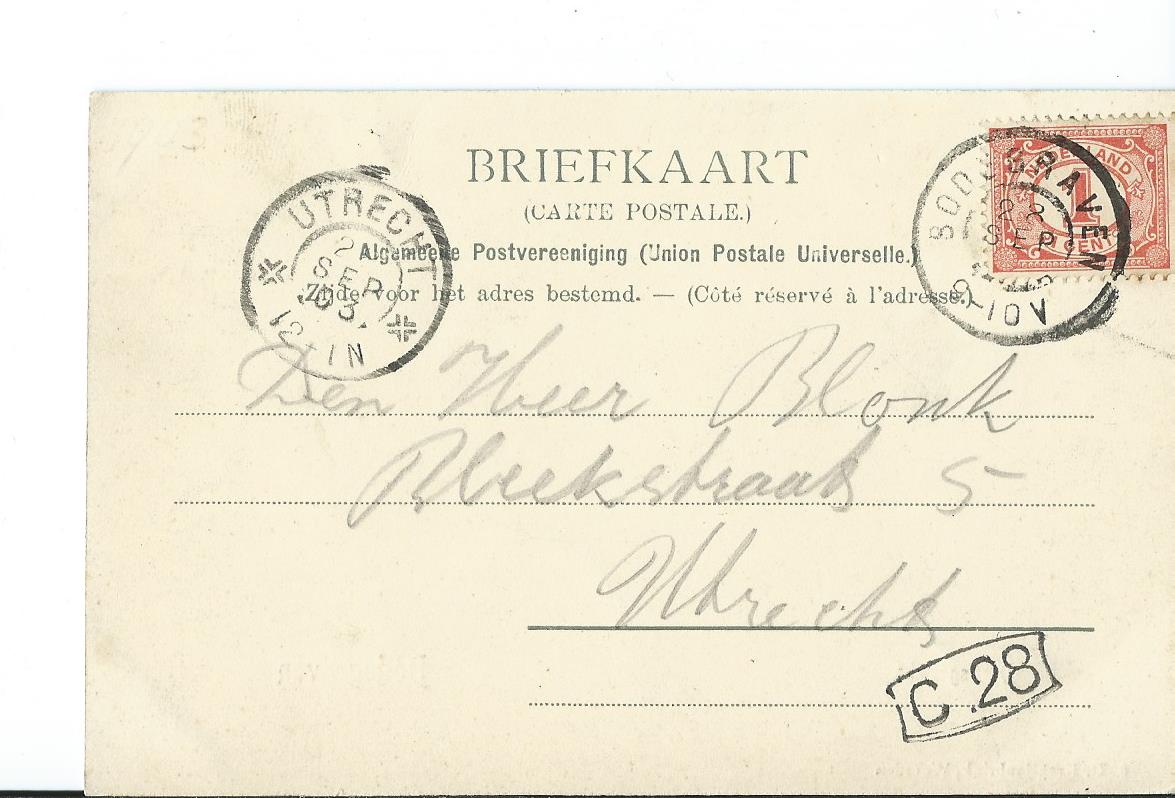 BRIEFKAART
(CARTE POSTALE.)
Algemeene Postvereeniging (Union Postale Universelle.)
Zijde voor het adres bestemd. — (Côté réservé à l'adresse.)
UTRECHT
2
SEP
03.
12-1N
NEDERLAND
1
CENT
BODEGRAVEN
2 SEP
9-10V
Den Heer Blonk
Bleekstraat 5
Utrecht
C.28